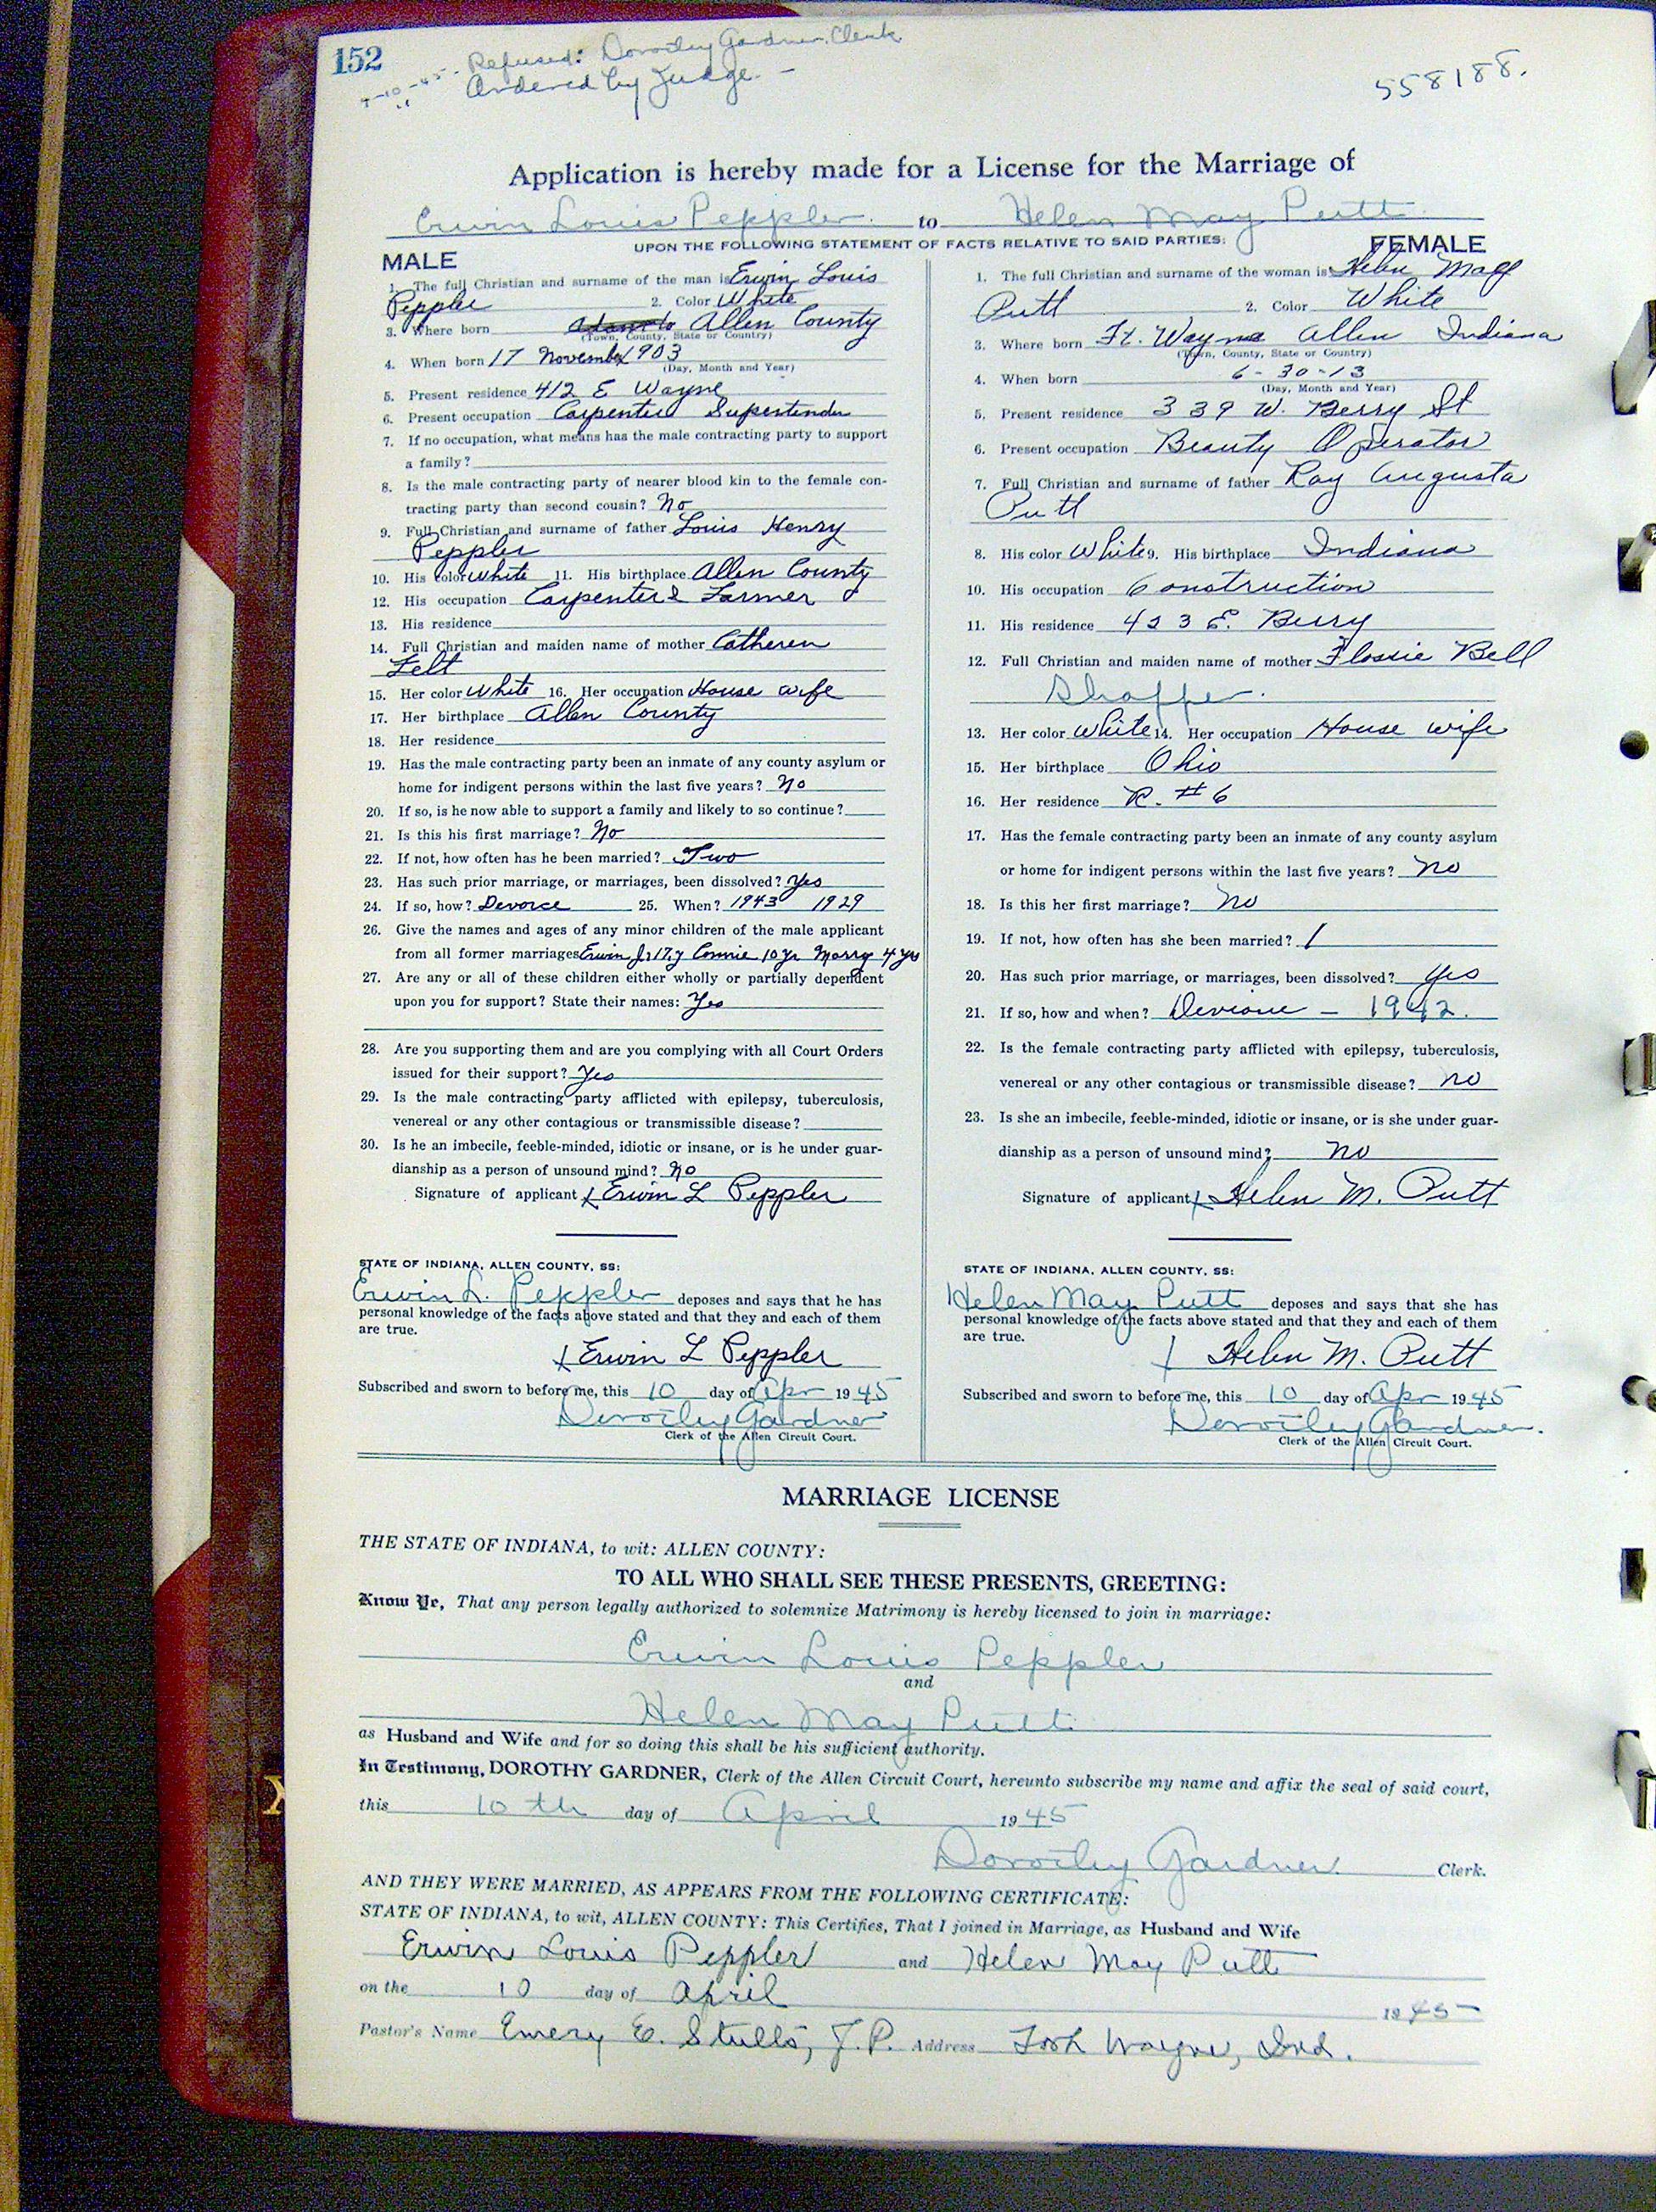 152
Refused: Dorothy Gardner. Clerk
4-10-45- Ordered by Judge. -
"
558188.
Application is hereby made for a License for the Marriage of
Erwin Louis Peppler. to Helen May Putt
UPON THE FOLLOWING STATEMENT OF FACTS RELATIVE TO SAID PARTIES:
MALE
1. The full Christian and surname of the man is Erwin Louis
Peppler 2. Color White
3. Where born Allen County
(Town, County, State or Country)
4. When born 17 November 1903
(Day, Month and Year)
5. Present residence 412 E Wayne
6. Present occupation Carpenter
7. If no occupation, what means has the male contracting party to support
a family?
8. Is the male contracting party of nearer blood kin to the female con-
tracting party than second cousin? No
9. Full Christian and surname of father Louis Henry
Peppler
10. His color White 11. His birthplace Allen County
12. His occupation Carpenter & Farmer
13. His residence
14. Full Christian and maiden name of mother Catheren
Felt
15. Her color White 16. Her occupation House wife
17. Her birthplace Allen County
18. Her residence
19. Has the male contracting party been an inmate of any county asylum or
home for indigent persons within the last five years? No
20. If so, is he now able to support a family and likely to so continue?
21. Is this his first marriage? No
22. If not, how often has he been married? Two
23. Has such prior marriage, or marriages, been dissolved? Yes
24. If so, how? Devorce 25. When? 1943 1929
26. Give the names and ages of any minor children of the male applicant
from all former marriages Erwin Jr 17 y Connie 10 yr Marry 4 yrs
27. Are any or all of these children either wholly or partially dependent
upon you for support? State their names: Yes
28. Are you supporting them and are you complying with all Court Orders
issued for their support? Yes
29. Is the male contracting party afflicted with epilepsy, tuberculosis,
venereal or any other contagious or transmissible disease?
30. Is he an imbecile, feeble-minded, idiotic or insane, or is he under guar-
dianship as a person of unsound mind? No
Signature of applicant x Erwin L Peppler
STATE OF INDIANA, ALLEN COUNTY, SS:
Erwin L. Peppler deposes and says that he has
personal knowledge of the facts above stated and that they and each of them
are true.
x Erwin L Peppler
Subscribed and sworn to before me, this 10 day of Apr 1945
Dorothy Gardner
Clerk of the Allen Circuit Court.
FEMALE
1. The full Christian and surname of the woman is Helen Mae
Putt 2. Color White
3. Where born Ft. Wayne Allen Indiana
(Town, County, State or Country)
4. When born 6-30-13
(Day, Month and Year)
5. Present residence 339 W. Berry St
6. Present occupation Beauty Operator
7. Full Christian and surname of father Ray Augusta
Putt
8. His color White 9. His birthplace Indiana
10. His occupation Construction
11. His residence 423 E. Berry
12. Full Christian and maiden name of mother Flossie Bell
Shaffer.
13. Her color White 14. Her occupation House wife
15. Her birthplace Ohio
16. Her residence R. #6
17. Has the female contracting party been an inmate of any county asylum
or home for indigent persons within the last five years? no
18. Is this her first marriage? no
19. If not, how often has she been married? 1
20. Has such prior marriage, or marriages, been dissolved? yes
21. If so, how and when? - 1942.
22. Is the female contracting party afflicted with epilepsy, tuberculosis,
venereal or any other contagious or transmissible disease? no
23. Is she an imbecile, feeble-minded, idiotic or insane, or is she under guar-
dianship as a person of unsound mind? no
Signature of applicant x Helen M. Putt
STATE OF INDIANA, ALLEN COUNTY, SS:
Helen May Putt deposes and says that she has
personal knowledge of the facts above stated and that they and each of them
are true.
x Helen M. Putt
Subscribed and sworn to before me, this 10 day of Apr 1945
Dorothy Gardner.
Clerk of the Allen Circuit Court.
MARRIAGE LICENSE
THE STATE OF INDIANA, to wit: ALLEN COUNTY:
TO ALL WHO SHALL SEE THESE PRESENTS, GREETING:
Know Ye, That any person legally authorized to solemnize Matrimony is hereby licensed to join in marriage:
Erwin Louis Peppler
and
Helen May Putt
as Husband and Wife and for so doing this shall be his sufficient authority.
In Testimony, DOROTHY GARDNER, Clerk of the Allen Circuit Court, hereunto subscribe my name and affix the seal of said court,
this 10th day of April 1945
Dorothy Gardner Clerk.
AND THEY WERE MARRIED, AS APPEARS FROM THE FOLLOWING CERTIFICATE:
STATE OF INDIANA, to wit, ALLEN COUNTY: This Certifies, That I joined in Marriage, as Husband and Wife
Erwin Louis Peppler and Helen May Putt
on the 10 day of April 1945
Pastor's Name Emery E. Stults, J.P. Address Fort Wayne, Ind.